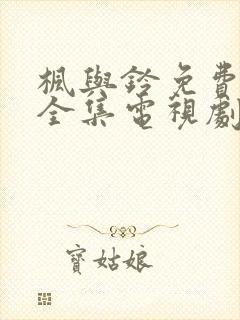 楓與鈴免費
全集電視劇
寶姑娘